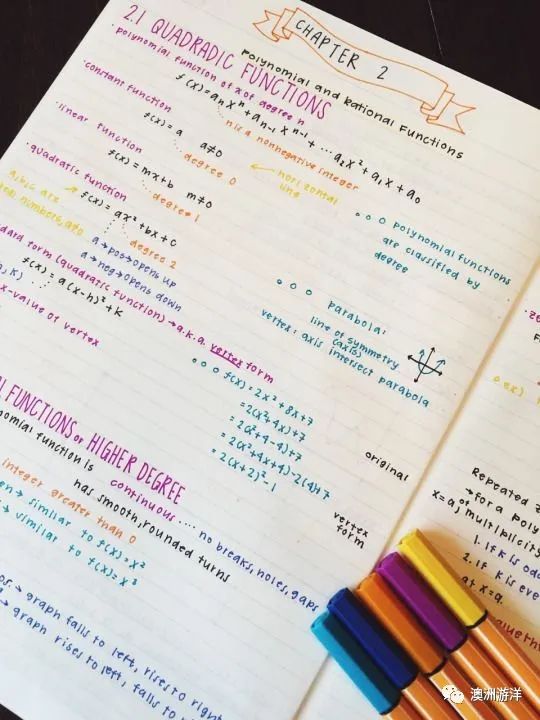 CHAPTER 2
Polynomial and Rational Functions
2.1 QUADRADIC FUNCTIONS
· polynomial function of x of degree n
f(x) = aₙxⁿ + aₙ₋₁xⁿ⁻¹ + ... a₂x² + a₁x + a₀
n is a nonnegative integer
· constant function
f(x) = a a≠0
degree 0
← horizontal
line
· linear function
f(x) = mx+b m≠0
degree 1
polynomial functions
are classified by
degree
· quadratic function
f(x) = ax²+bx+c
degree 2
a, b, c are
numbers, a≠0
a → pos → opens up
a → neg → opens down
form (quadratic function) → a.k.a. vertex form
f(x) = a(x-h)²+k
x-value of vertex
parabola:
line of symmetry
(axis)
vertex: axis intersect parabola
f(x) = 2x²+8x+7
= 2(x²+4x)+7
= 2(x²+4-4)+7
= 2(x²+4x+4)-2(4)+7
= 2(x+2)²-1
original
vertex
form
FUNCTIONS OF HIGHER DEGREE
function is continuous ... no breaks, holes, gaps
has smooth, rounded turns
integer greater than 0
→ similar to f(x)=x²
→ similar to f(x)=x³
→ graph falls to left, rises to right
→ graph rises to left, falls to
Repeated
→ for a
x=a, of
multiplicity
1. If k is odd
2. If k is even
at x=a.
澳洲游洋